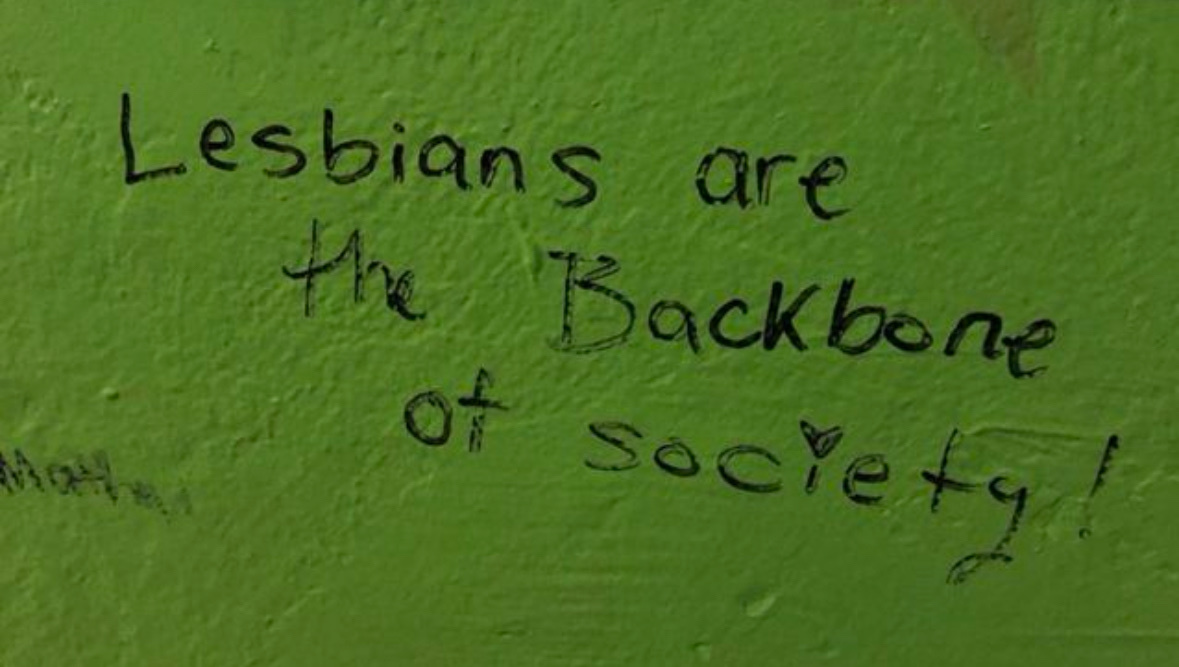 Lesbians are
the Backbone
of society!